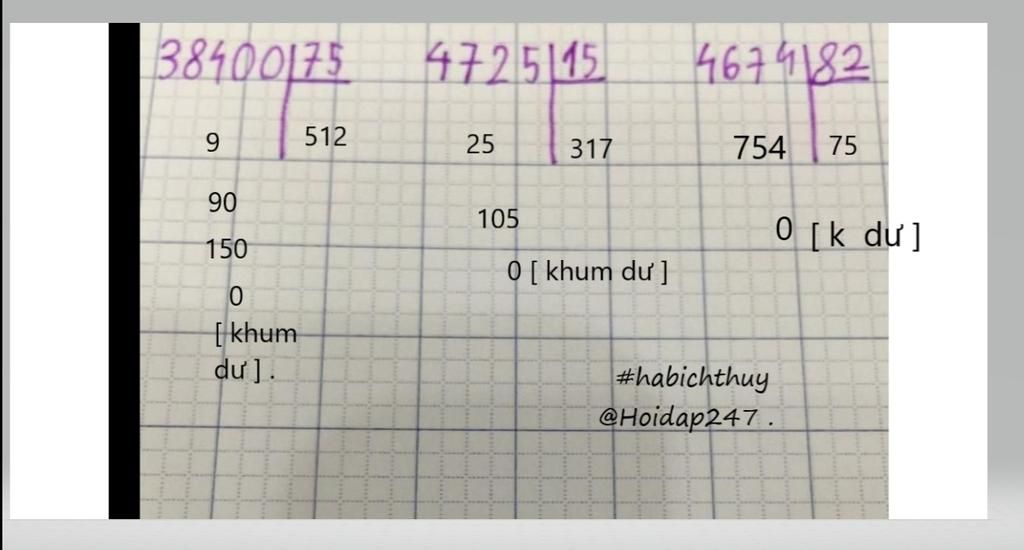 38400 75
9 512
90
150
0
[ khum
dư ] .
4725 15
25 317
105
0 [ khum dư ]
4674 82
754 75
0 [ k dư ]
#habichthuy
@Hoidap247 .